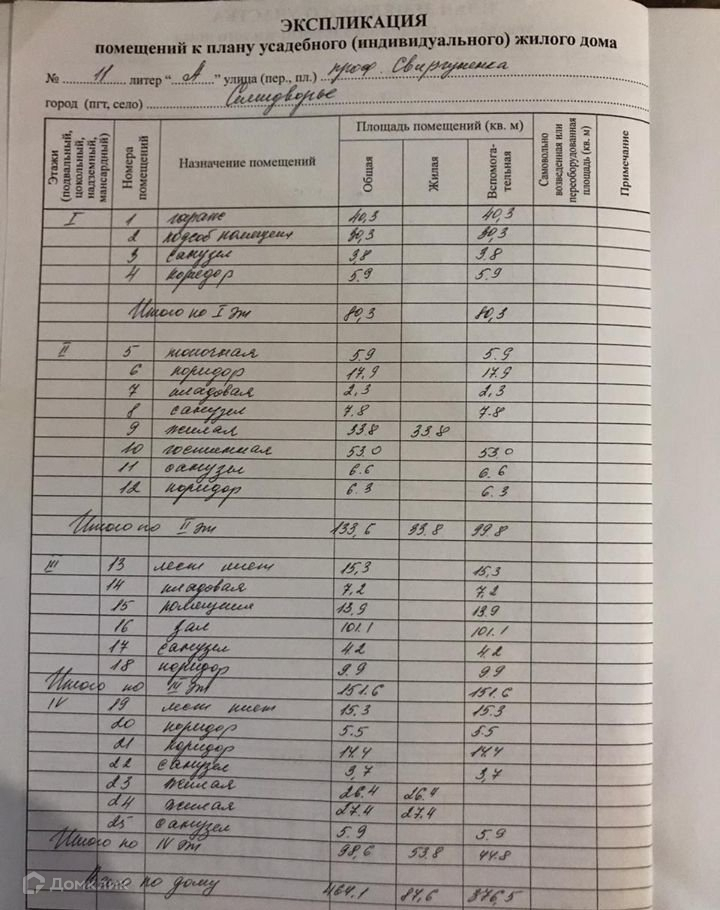 ЭКСПЛИКАЦИЯ
помещений к плану усадебного (индивидуального) жилого дома
№ 11 литер “ А ” улица (пер., пл.) проф. Свиргуненка
город (пгт, село) Семидворье
Этажи (подвальный, цокольный, надземный, мансардный) Номера помещений Назначение помещений Площадь помещений (кв. м) Общая Жилая Вспомога-тельная Самовольно возведенная или переоборудованная площадь (кв. м) Примечание
I 1 гараж 40,3 40,3
2 подсоб помещен 30,3 30,3
3 санузел 3,8 3.8
4 коридор 5.9 5.9
Итого по I эт 80,3 80,3
II 5 топочная 5.9 5.9
6 коридор 17,9 17.9
7 кладовая 2,3 2,3
8 санузел 7.8 7.8
9 жилая 33.8 33.8
10 гостинная 53.0 53.0
11 санузел 6.6 6.6
12 коридор 6.3 6.3
Итого по II эт 133,6 33.8 99.8
III 13 лест клет 15,3 15,3
14 кладовая 7,2 7,2
15 помещения 13,9 13.9
16 зал 101.1 101.1
17 санузел 4.2 4.2
18 коридор 9.9 9.9
Итого по III эт 151.6 151.6
IV 19 лест клет 15.3 15.3
20 коридор 5.5 5.5
21 коридор 14.4 14.4
22 санузел 3,7 3,7
23 жилая 26.4 26.4
24 жилая 27.4 27.4
25 санузел 5.9 5.9
Итого по IV эт 98,6 53.8 44.8
Всего по дому 464.1 87,6 376,5
Домклик